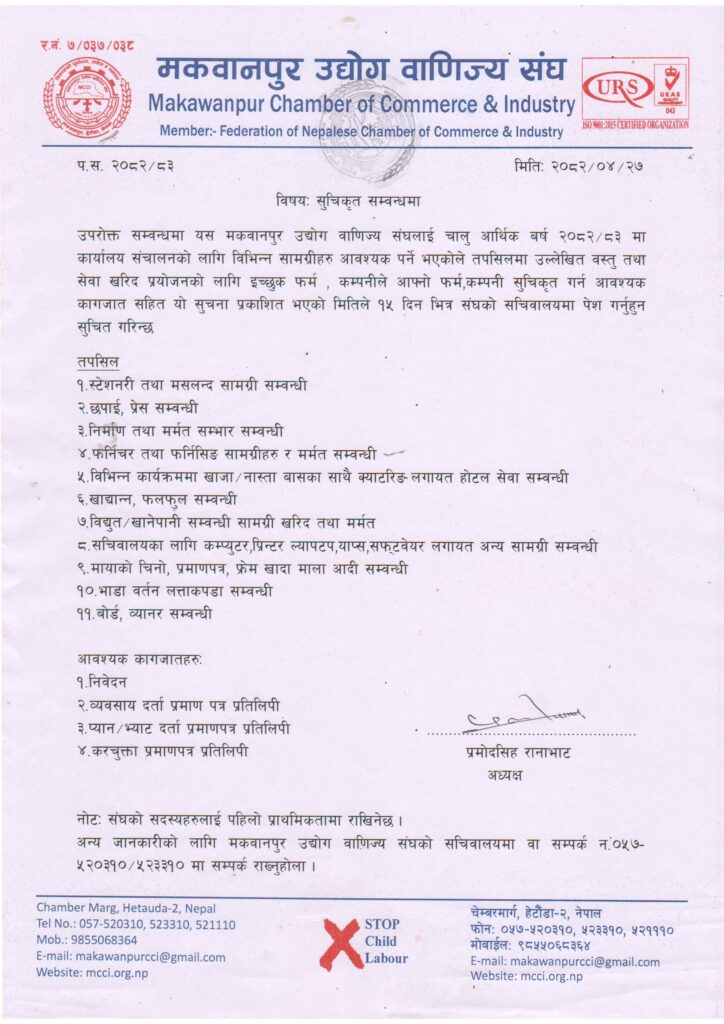 र.नं. ७/०३७/०३८
मकवानपुर उद्योग वाणिज्य संघ
Makawanpur Chamber of Commerce & Industry
Member:- Federation of Nepalese Chamber of Commerce & Industry
MCCI
URS
UKAS
QUALITY
MANAGEMENT
043
ISO 9001:2015 CERTIFIED ORGANIZATION
प.स. २०८२/८३
मितिः २०८२/०४/२७
विषयः सुचिकृत सम्वन्धमा
उपरोक्त सम्वन्धमा यस मकवानपुर उद्योग वाणिज्य संघलाई चालु आर्थिक बर्ष २०८२/८३ मा
कार्यालय संचालनको लागि विभिन्न सामग्रीहरु आवश्यक पर्ने भएकोले तपसिलमा उल्लेखित वस्तु तथा
सेवा खरिद प्रयोजनको लागि इच्छुक फर्म , कम्पनीले आफ्नो फर्म,कम्पनी सुचिकृत गर्न आवश्यक
कागजात सहित यो सुचना प्रकाशित भएको मितिले १५ दिन भित्र संघको सचिवालयमा पेश गर्नुहुन
सुचित गरिन्छ
तपसिल
१.स्टेशनरी तथा मसलन्द सामग्री सम्वन्धी
२.छपाई, प्रेस सम्वन्धी
३.निर्माण तथा मर्मत सम्भार सम्वन्धी
४.फर्निचर तथा फर्निसिङ सामग्रीहरु र मर्मत सम्वन्धी
५.विभिन्न कार्यक्रममा खाजा/नास्ता बासका साथै क्याटरिङ-लगायत होटल सेवा सम्वन्धी
६.खाद्यान्न, फलफुल सम्वन्धी
७.विद्युत/खानेपानी सम्वन्धी सामग्री खरिद तथा मर्मत
८.सचिवालयका लागि कम्प्युटर,प्रिन्टर ल्यापटप,याप्स,सफ्टवेयर लगायत अन्य सामग्री सम्वन्धी
९.मायाको चिनो, प्रमाणपत्र, फ्रेम खादा माला आदी सम्वन्धी
१०.भाडा वर्तन लत्ताकपडा सम्वन्धी
११.बोर्ड, व्यानर सम्वन्धी
आवश्यक कागजातहरुः
१.निवेदन
२.व्यवसाय दर्ता प्रमाण पत्र प्रतिलिपी
३.प्यान/भ्याट दर्ता प्रमाणपत्र प्रतिलिपी
४.करचुक्ता प्रमाणपत्र प्रतिलिपी
प्रमोदसिह रानाभाट
अध्यक्ष
नोटः संघको सदस्यहरुलाई पहिलो प्राथमिकतामा राखिनेछ ।
अन्य जानकारीको लागि मकवानपुर उद्योग वाणिज्य संघको सचिवालयमा वा सम्पर्क न.०५७-
५२०३१०/५२३३१० मा सम्पर्क राख्नुहोला ।
Chamber Marg, Hetauda-2, Nepal
Tel No.: 057-520310, 523310, 521110
Mob.: 9855068364
E-mail: makawanpurcci@gmail.com
Website: mcci.org.np
STOP
Child
Labour
चेम्बरमार्ग, हेटौंडा-२, नेपाल
फोनः ०५७-५२०३१०, ५२३३१०, ५२१११०
मोबाईलः ९८५५०६८३६४
E-mail: makawanpurcci@gmail.com
Website: mcci.org.np